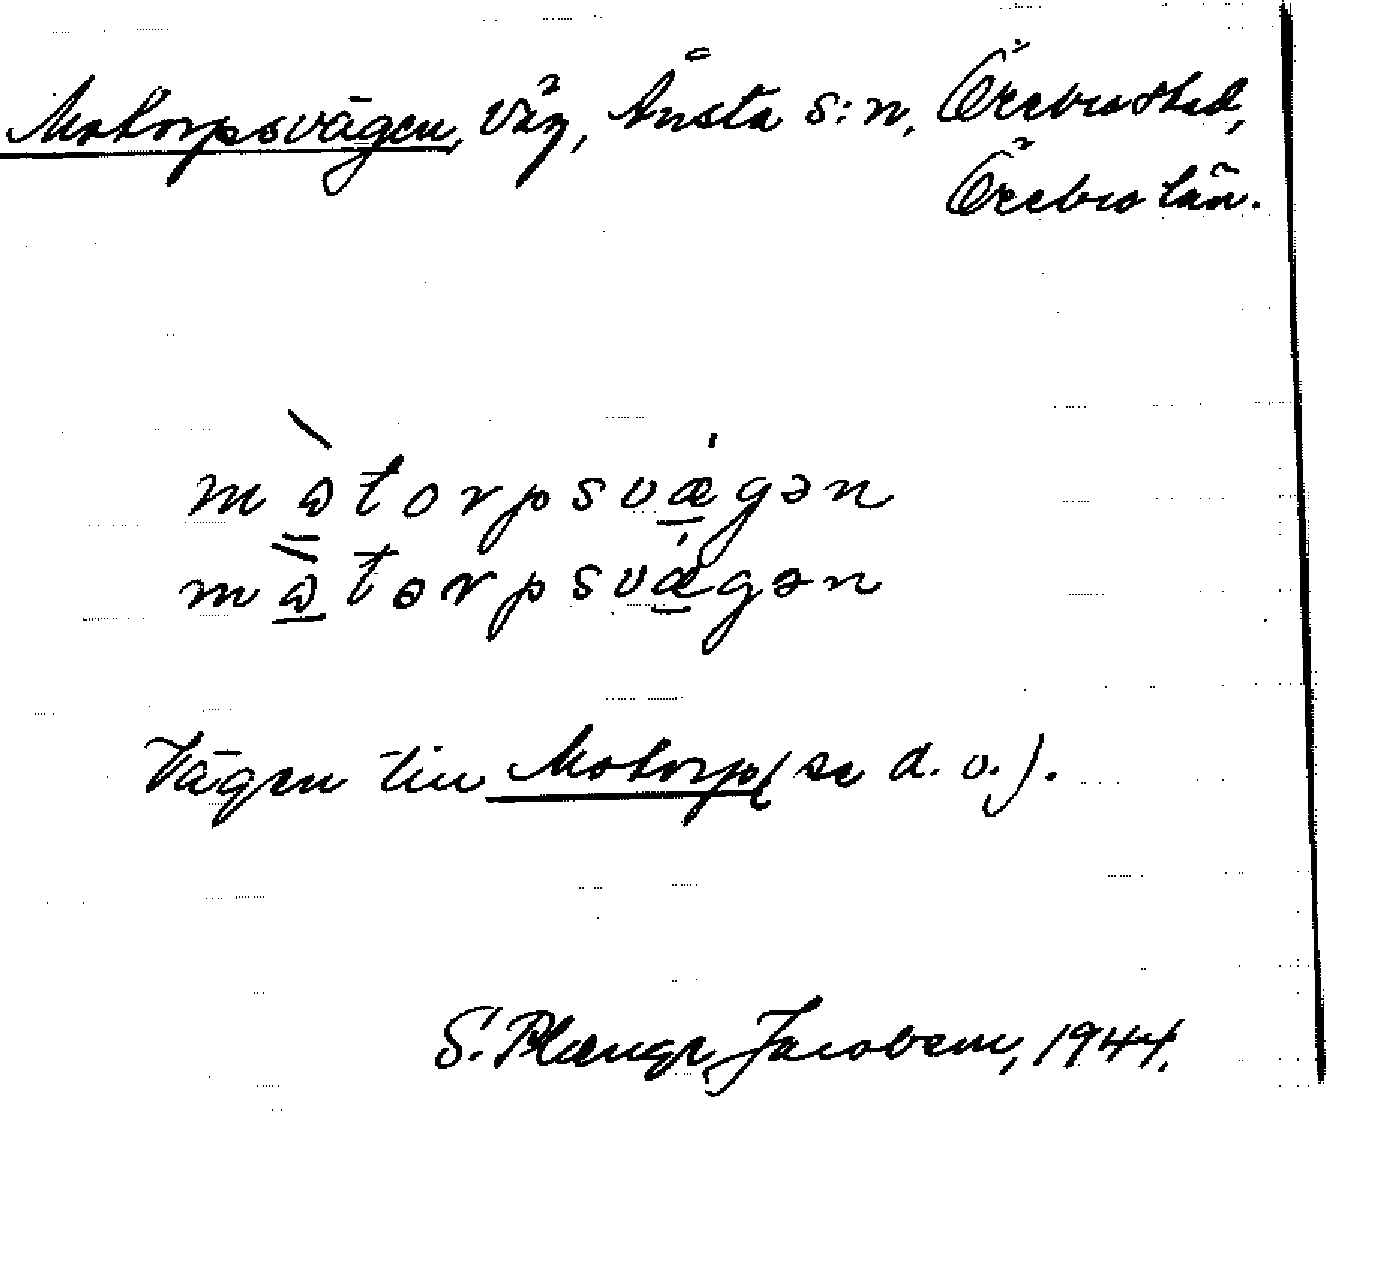 Motorpsvägen, väg, Ånsta s:n, Örebro stad,
Örebro län.
mòtorpsvǽgən
mòtərpsvǽgən
Vägen till Motorp (se d. o.).
S. Plænge Jacobson, 1944.